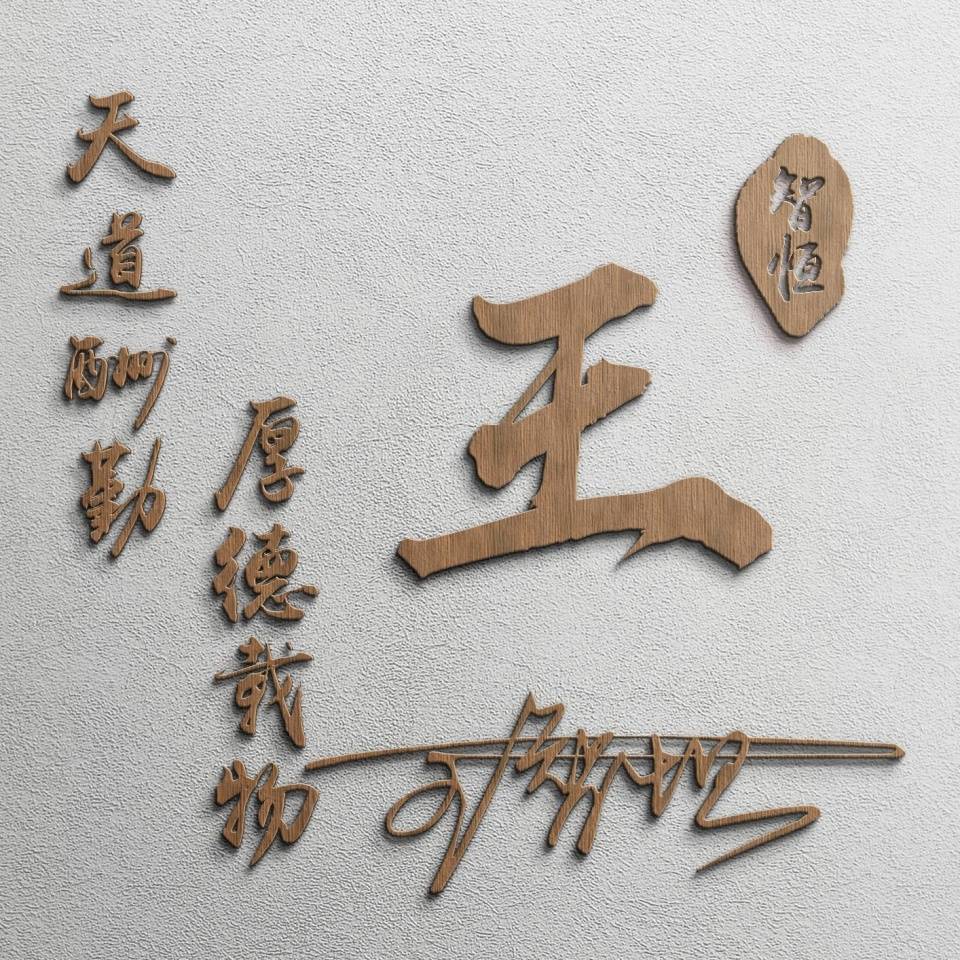 天道酬勤
厚德载物
王
智恒